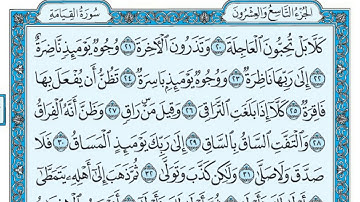 الجزء التاسع والعشرون سورة القيامة
كَلَّا بَلْ تُحِبُّونَ الْعَاجِلَةَ ٢٠ وَتَذَرُونَ الْآخِرَةَ ٢١ وُجُوهٌ يَوْمَئِذٍ نَّاضِرَةٌ
٢٢ إِلَىٰ رَبِّهَا نَاظِرَةٌ ٢٣ وَوُجُوهٌ يَوْمَئِذٍ بَاسِرَةٌ ٢٤ تَظُنُّ أَن يُفْعَلَ بِهَا
فَاقِرَةٌ ٢٥ كَلَّا إِذَا بَلَغَتِ التَّرَاقِيَ ٢٦ وَقِيلَ مَنْ رَاقٍ ٢٧ وَظَنَّ أَنَّهُ الْفِرَاقُ
٢٨ وَالْتَفَّتِ السَّاقُ بِالسَّاقِ ٢٩ إِلَىٰ رَبِّكَ يَوْمَئِذٍ الْمَسَاقُ ٣٠ فَلَا
صَدَّقَ وَلَا صَلَّىٰ ٣١ وَلَٰكِن كَذَّبَ وَتَوَلَّىٰ ٣٢ ثُمَّ ذَهَبَ إِلَىٰ أَهْلِهِ يَتَمَطَّىٰ